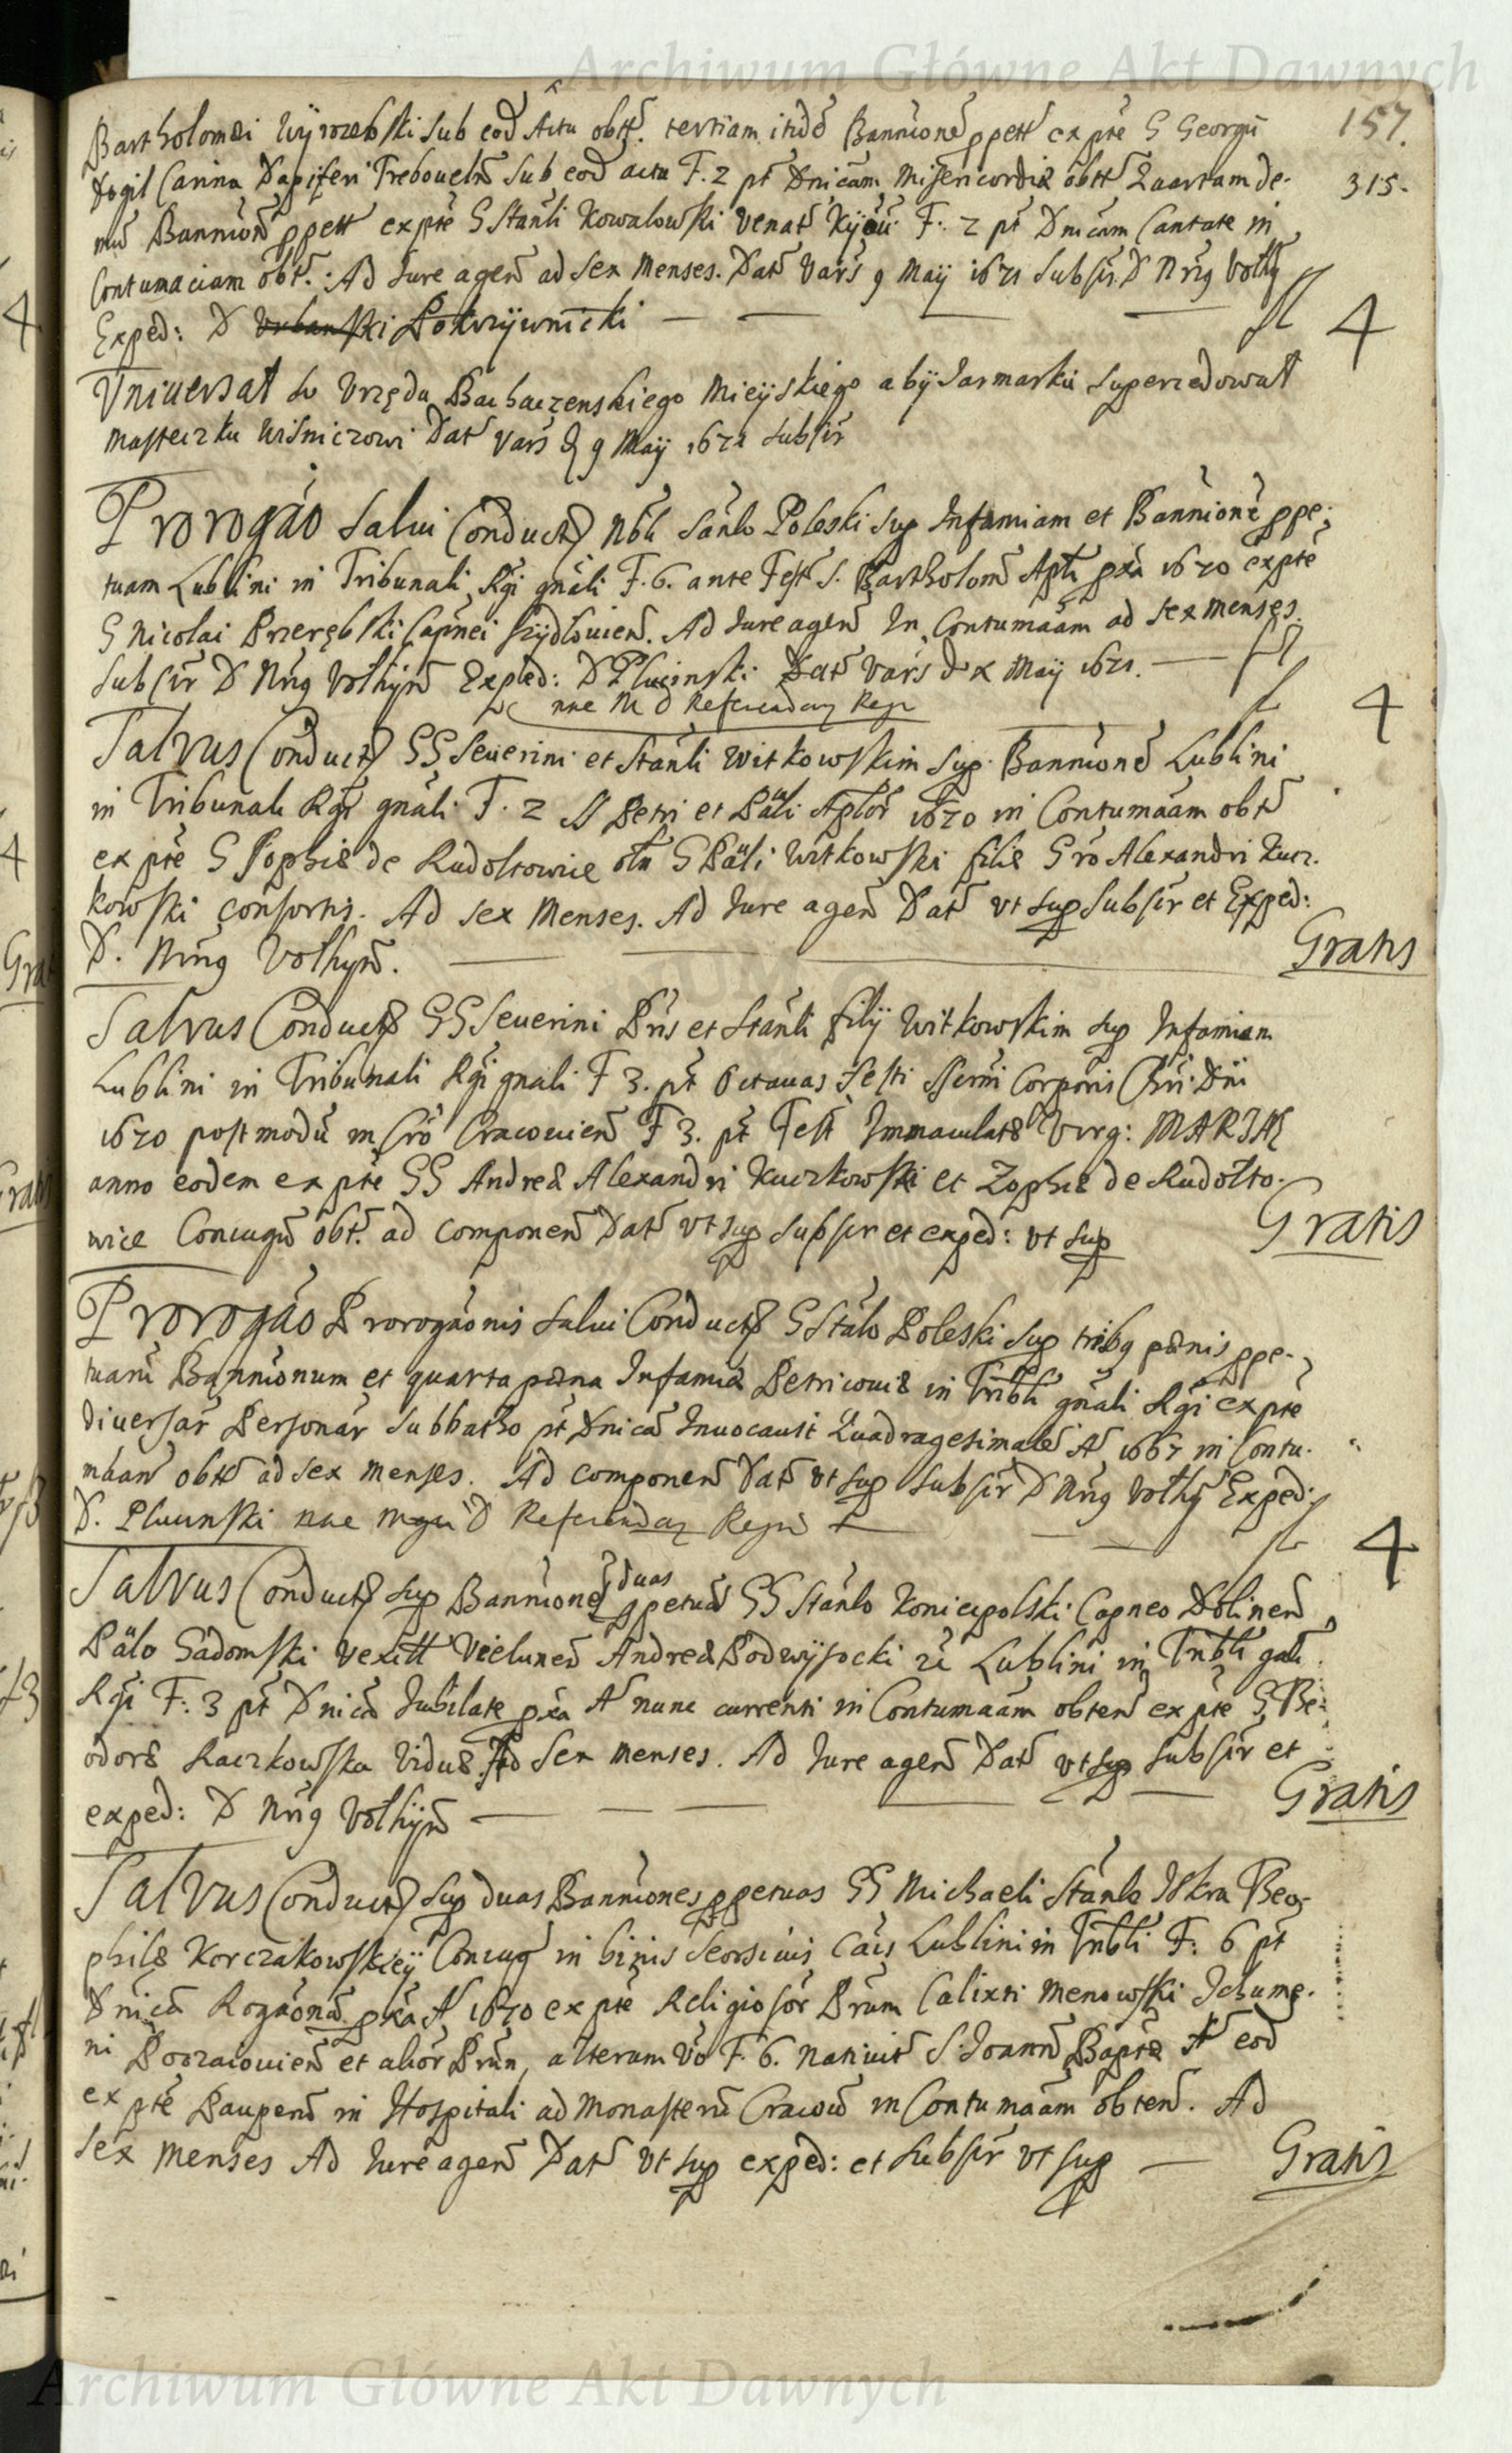 Archiwum Główne Akt Dawnych
157.
315.
Bartholomæi Wyrzebski sub eod Actu obtt. tertiam itidẽ Bannionẽ ppett ex pte G Georgii
Carina Dapiferi Trebovelñ sub eod actu F. 2 pt Dnicam Misericordiæ obtt Quartam de-
mũ Banniõñ ppett ex pte G Stanli Kowalowski Venat Kijoũ F. 2 pt Dnicam Cantate in
Contumaciam obt. Ad Jure ageñ ad sex Menses. Dat Vars 9 Maij 1671 Subscr. D Nrũg Volhỹ
Exped: D Pokrzywnicki
4
Vniuersał do Vrzędu Miejskiego aby Jarmarku supersedował
Miasteczku Wiśniczowi Dat Vars D 9 Maij 1671 Subscr
Prorogão Salui Conductq Nbli Stanlo Poleski sup Infamiam et Bannionẽ ppe-
tuam Lublini in Tribunali Rgi gnãli F. 6. ante Fest S. Bartholom Apli pxa 1670 ex pte
G Nicolai Przerębski Capnei Szydlouieñ. Ad Jure ageñ In Contumaãm ad sex menses.
Subscr D Nrũg Volhyñ Exped: D Plucinski Dat Vars d x Maij 1671.
nne M D Referendary Regn
4
Salvus Conductq GG Seuerini et Stanli Witkowskim sup. Bannionẽ Lublini
in Tribunali Rgi gnãli F. 2 SS Petri et Pãli Aplor 1670 in Contumaãm obt
ex pte G Zophiæ de Rudoltowice olu G Pãli Witkowski filiæ G ro Alexandri Kucz-
kowski consortis. Ad sex Menses. Ad Jure ageñ Dat vt sup Subscr et Exped:
D. Nrũg Volhyñ.
Gratis
Salvus Conductq GG Seuerini Pris et Stanli filij Witkowskim sup Infamiam
Lublini in Tribunali Rgi gnali F 3. pt Octauas Festi SScrmi Corporis Chri Dni
1670 postmodũ in Crõ Cracouieñ F 3. pt Fest Immaculatæ Virg: MARIÆ
anno eodem ex pte GG Andreæ Alexandri Kuczkowski et Zophiæ de Rudolto-
wice Coniugũ obt. ad componeñ Dat vt sup subscr et exped: vt sup
Gratis
Prorogão Prorogãonis Salui Conductq G Stãlo Poleski sup tribq pænis ppe-
tuarũ Bannionum et quarta pæna Infamiæ Petricouiæ in Tribli gnãli Rgi ex pte
diuersar Personar Subbatho pt Dnicã Inuocauit Quadragesimalẽ A 1667 in Contu-
mãam obtẽ ad sex menses. Ad componeñ Dat vt sup Subscr D Nrũg Volhỹ Exped:
D. Plucinski nne Mgci D Referendary Regni
4
Salvus Conductq sup Banniones duas ppetuas GG Stanlo Koniecpolski Capneo Dolineñ
Pãlo Sadomski Vexill Vieluneñ Andreæ Podwysocki Lublini in Tribli gnli
Rgi F. 3 pt Dnicã Jubilate pxa A nunc currenti in Contumaãm obteñ ex pte G Be-
odoræ Raczkowska Viduæ Ad Sex menses. Ad Jure ageñ Dat vt sup Subscr et
exped: D Nrũg Volhijñ
Gratis
Salvus Conductq sup duas Banniones ppetuas GG Michaeli Stanlo Iskra Beo-
philæ Korczakowskiey Coniug in binis seorsiuis Cãis Lublini in Tribli F. 6 pt
Dnicã Rogãonũ pxa A 1670 ex pte Religiosor Prum Calixti Menowski Ichume-
ni et alior Prum, alterum Võ F. 6. Natiuit S. Joann Bapte A eod
ex pte Pauperũ in Hospitali ad Monasterũ Cracoũ in Contumaãm obteñ. Ad
sex Menses Ad Jure ageñ Dat vt sup exped: et subscr vt sup
Gratis
Archiwum Główne Akt Dawnych